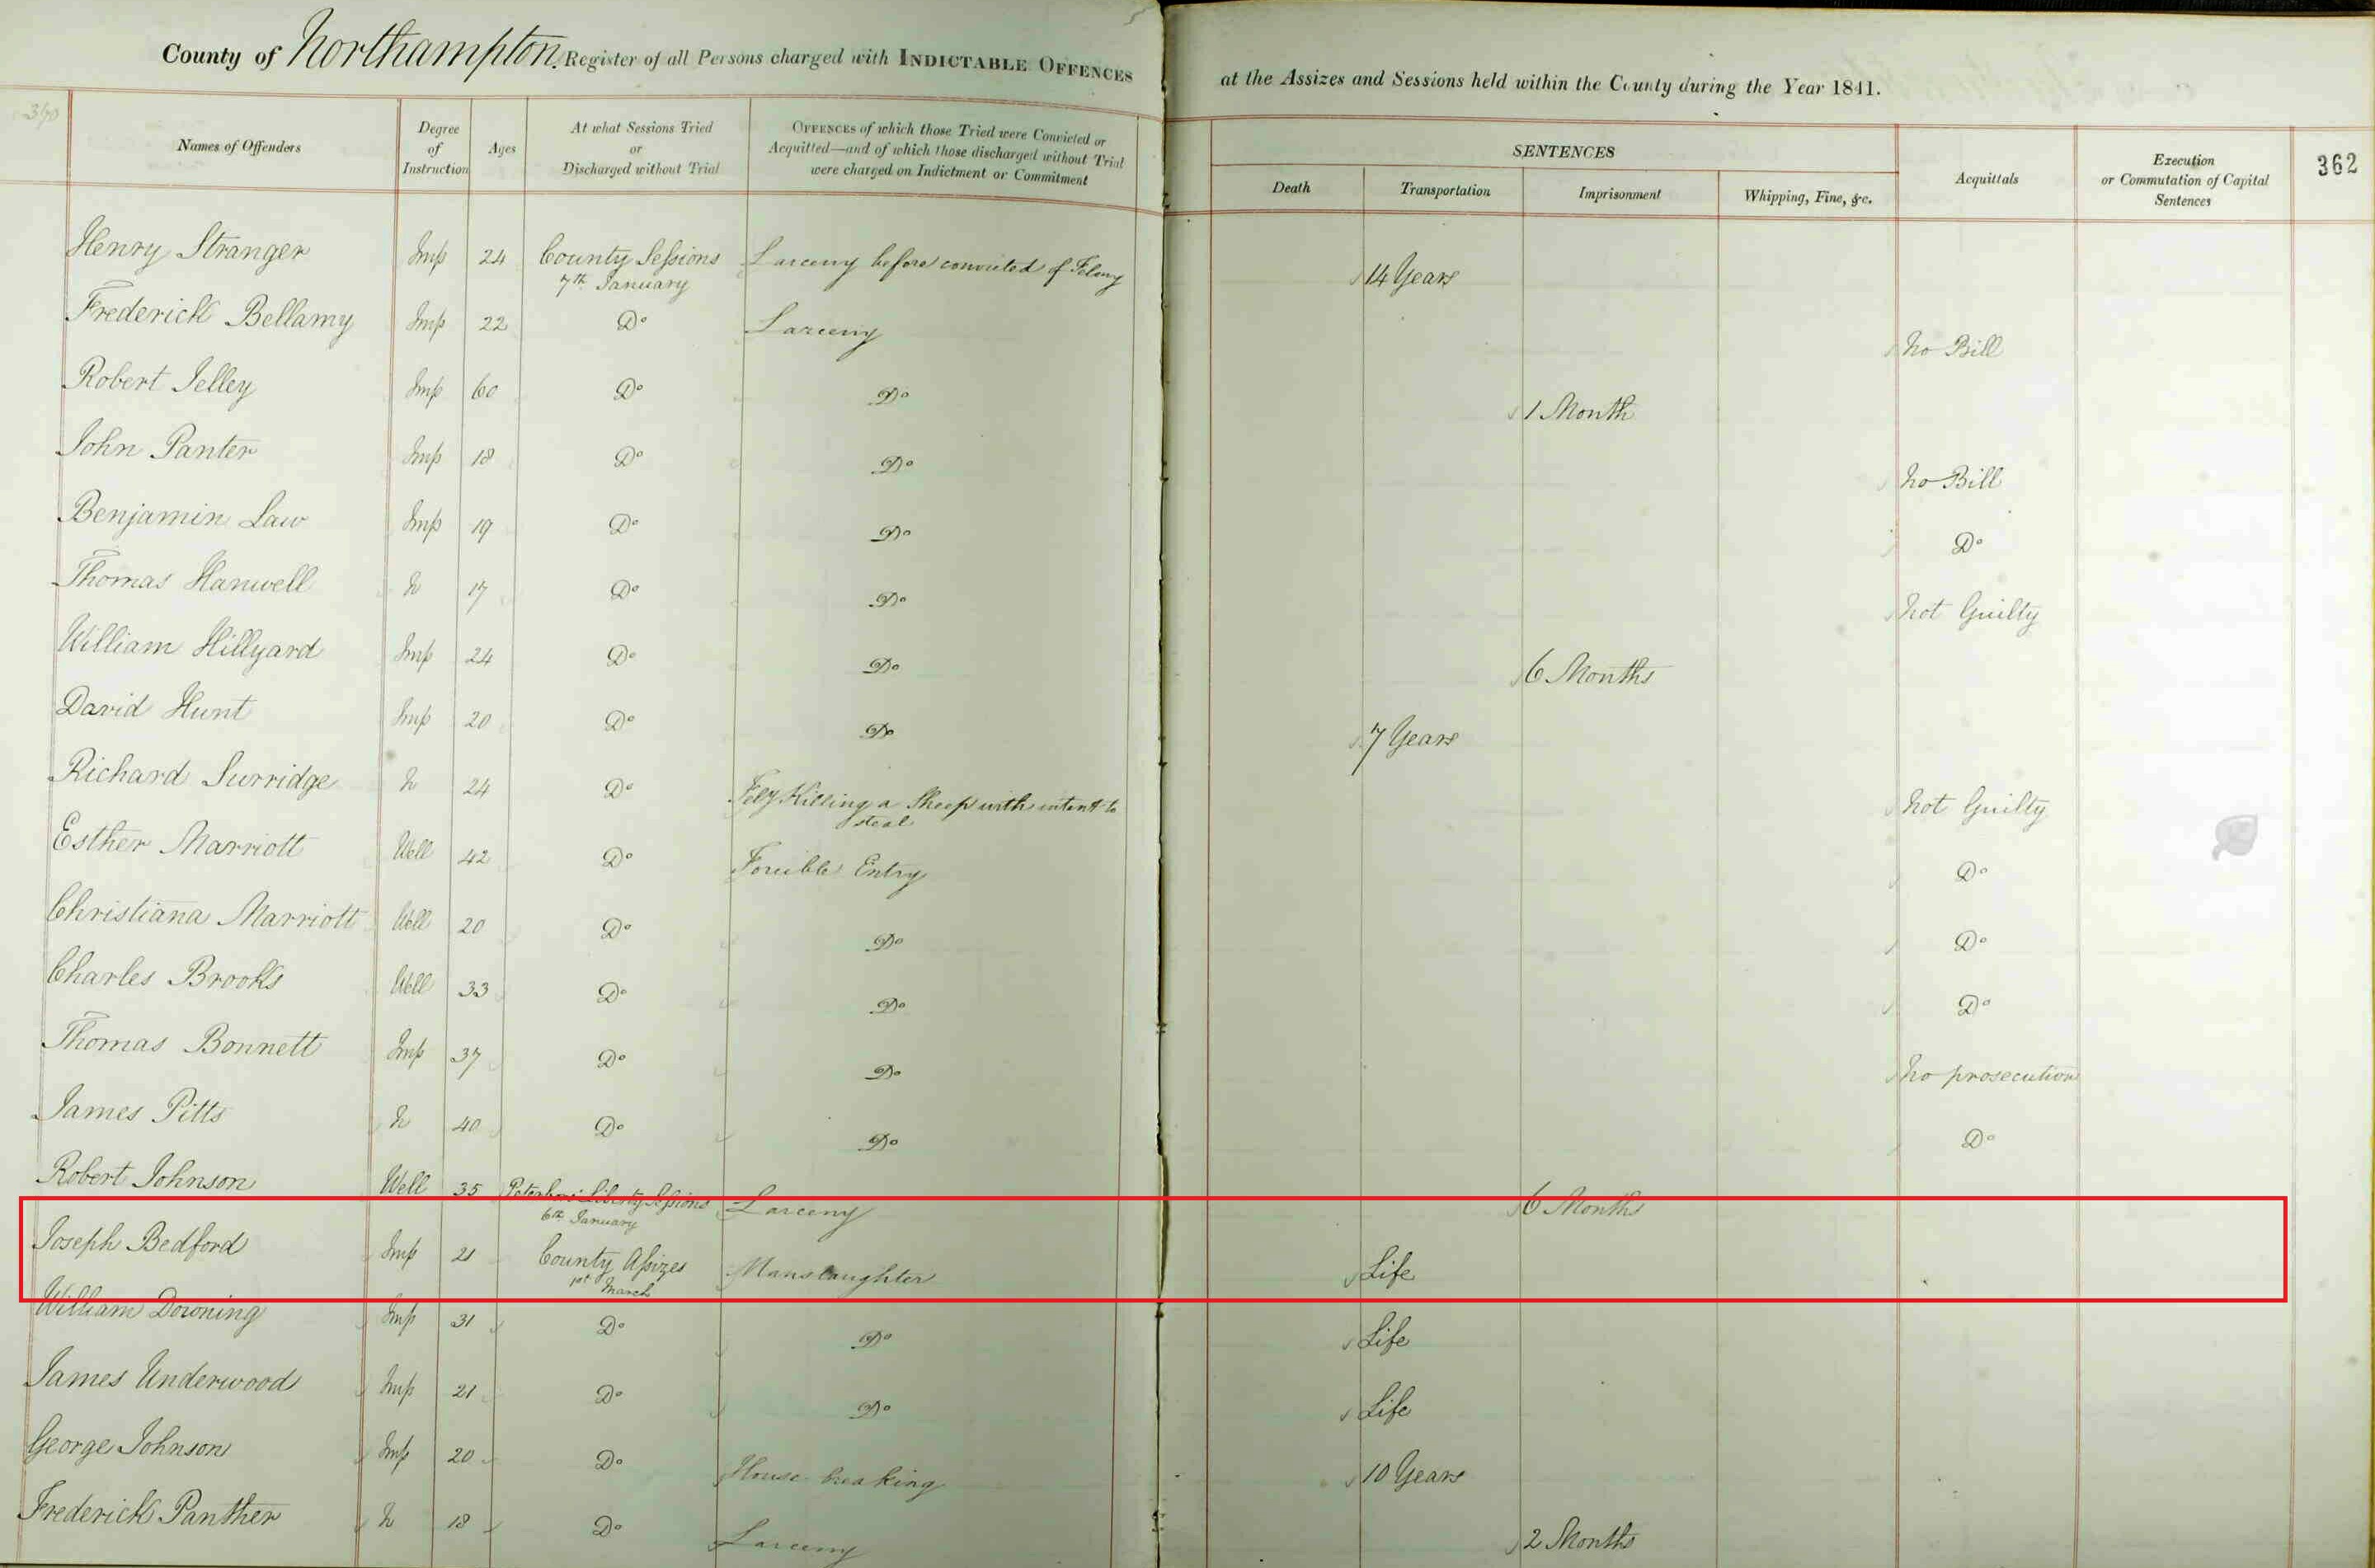 County of Northampton. Register of all Persons charged with INDICTABLE OFFENCES at the Assizes and Sessions held within the County during the Year 1841.
Names of Offenders Degree of Instruction Ages At what Sessions Tried or Discharged without Trial OFFENCES of which those Tried were Convicted or Acquitted—and of which those discharged without Trial were charged on Indictment or Commitment SENTENCES Death Transportation Imprisonment Whipping, Fine, &c. Acquittals Execution or Commutation of Capital Sentences 362
Henry Stranger Imp 24 County Sessions 7th January Larceny before convicted of Felony 14 Years
Frederick Bellamy Imp 22 Do Larceny No Bill
Robert Jelley Imp 60 Do Do 1 Month
John Panter Imp 18 Do Do No Bill
Benjamin Law Imp 19 Do Do Do
Thomas Hanwell N 17 Do Do Not Guilty
William Hillyard Imp 24 Do Do 6 Months
David Hunt Imp 20 Do Do 7 Years
Richard Surridge N 24 Do Fely Killing a Sheep with intent to steal Not Guilty
Esther Marriott Well 42 Do Forcible Entry Do
Christiana Marriott Well 20 Do Do Do
Charles Brooks Well 33 Do Do Do
Thomas Bonnett Imp 37 Do Do No prosecution
James Pitts N 40 Do Do Do
Robert Johnson Well 35 Peterboro' Liberty Sessions 6th January Larceny 6 Months
Joseph Bedford Imp 21 County Assizes 1st March Manslaughter Life
William Downing Imp 31 Do Do Life
James Underwood Imp 21 Do Do Life
George Johnson Imp 20 Do House breaking 10 Years
Frederick Panther N 18 Do Larceny 2 Months